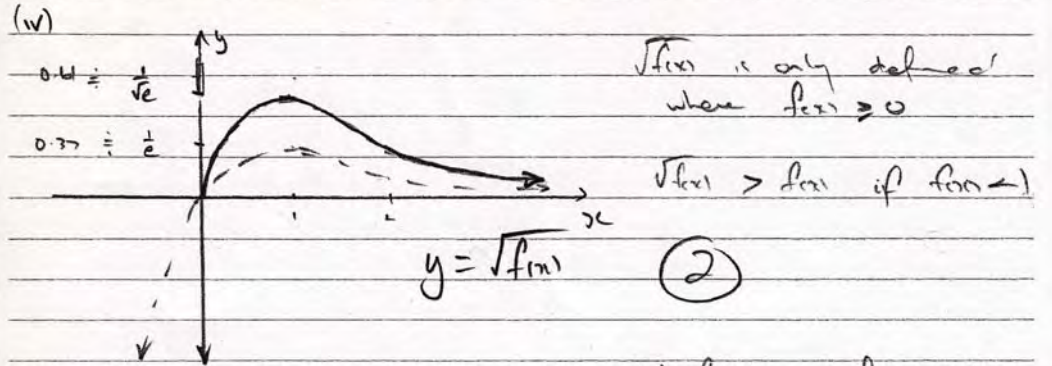 (iv)
y
0.61 ≑ 1/√e
0.37 ≑ 1/e
1 2
x
y = √f(x)
√f(x) is only defined
where f(x) ≥ 0
√f(x) > f(x) if f(x) < 1
2